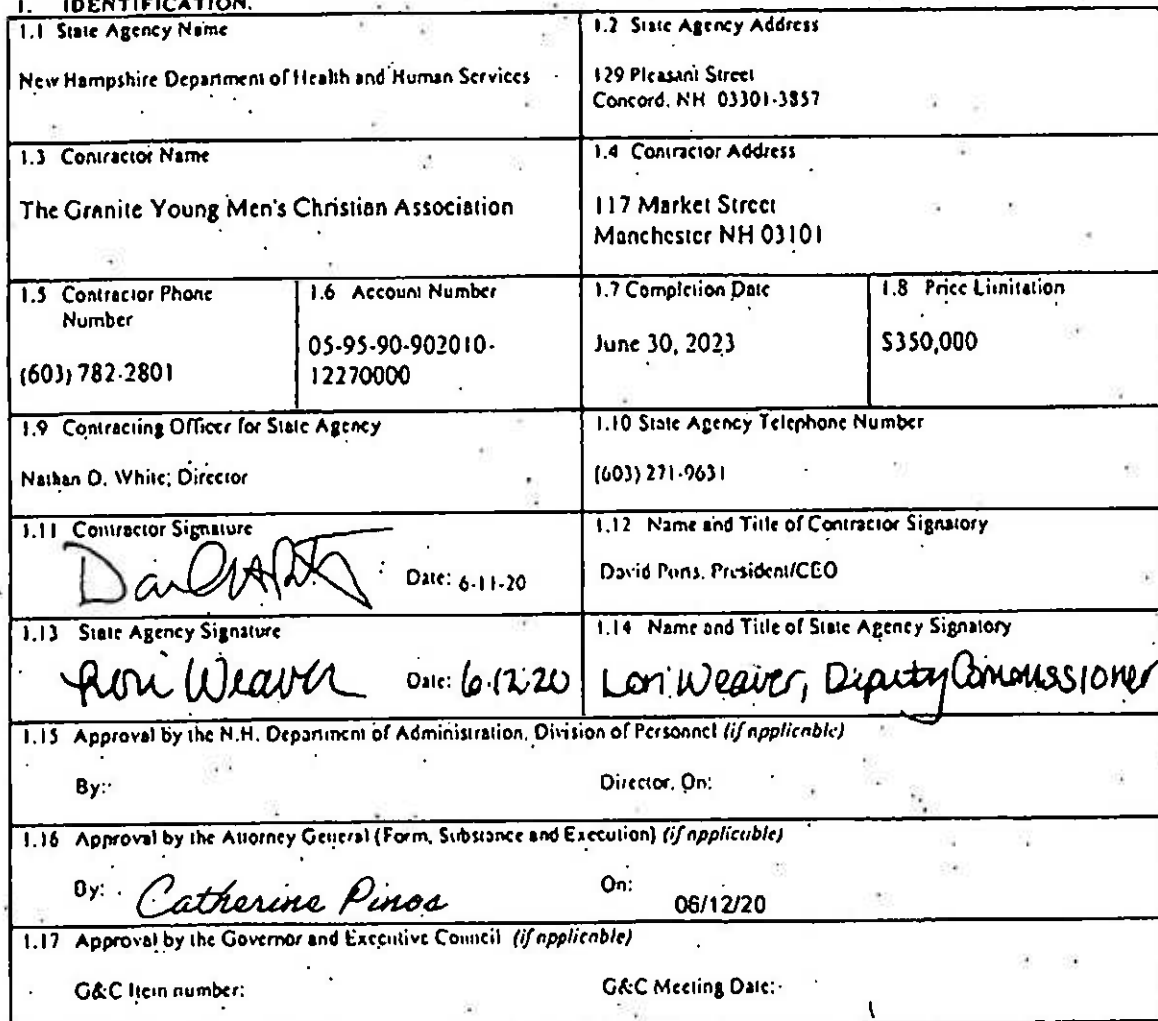 1. IDENTIFICATION.
1.1 State Agency Name
New Hampshire Department of Health and Human Services
1.2 State Agency Address
129 Pleasant Street
Concord, NH 03301-3857
1.3 Contractor Name
The Granite Young Men's Christian Association
1.4 Contractor Address
117 Market Street
Manchester NH 03101
1.5 Contractor Phone
Number
(603) 782-2801
1.6 Account Number
05-95-90-902010-
12270000
1.7 Completion Date
June 30, 2023
1.8 Price Limitation
$350,000
1.9 Contracting Officer for State Agency
Nathan D. White, Director
1.10 State Agency Telephone Number
(603) 271-9631
1.11 Contractor Signature
Date: 6-11-20
1.12 Name and Title of Contractor Signatory
David Ports, President/CEO
1.13 State Agency Signature
Lori Weaver Date: 6.12.20
1.14 Name and Title of State Agency Signatory
Lori Weaver, Deputy Commissioner
1.15 Approval by the N.H. Department of Administration, Division of Personnel (if applicable)
By: Director, On:
1.16 Approval by the Attorney General (Form, Substance and Execution) (if applicable)
By: Catherine Pinos On: 06/12/20
1.17 Approval by the Governor and Executive Council (if applicable)
G&C Item number: G&C Meeting Date: